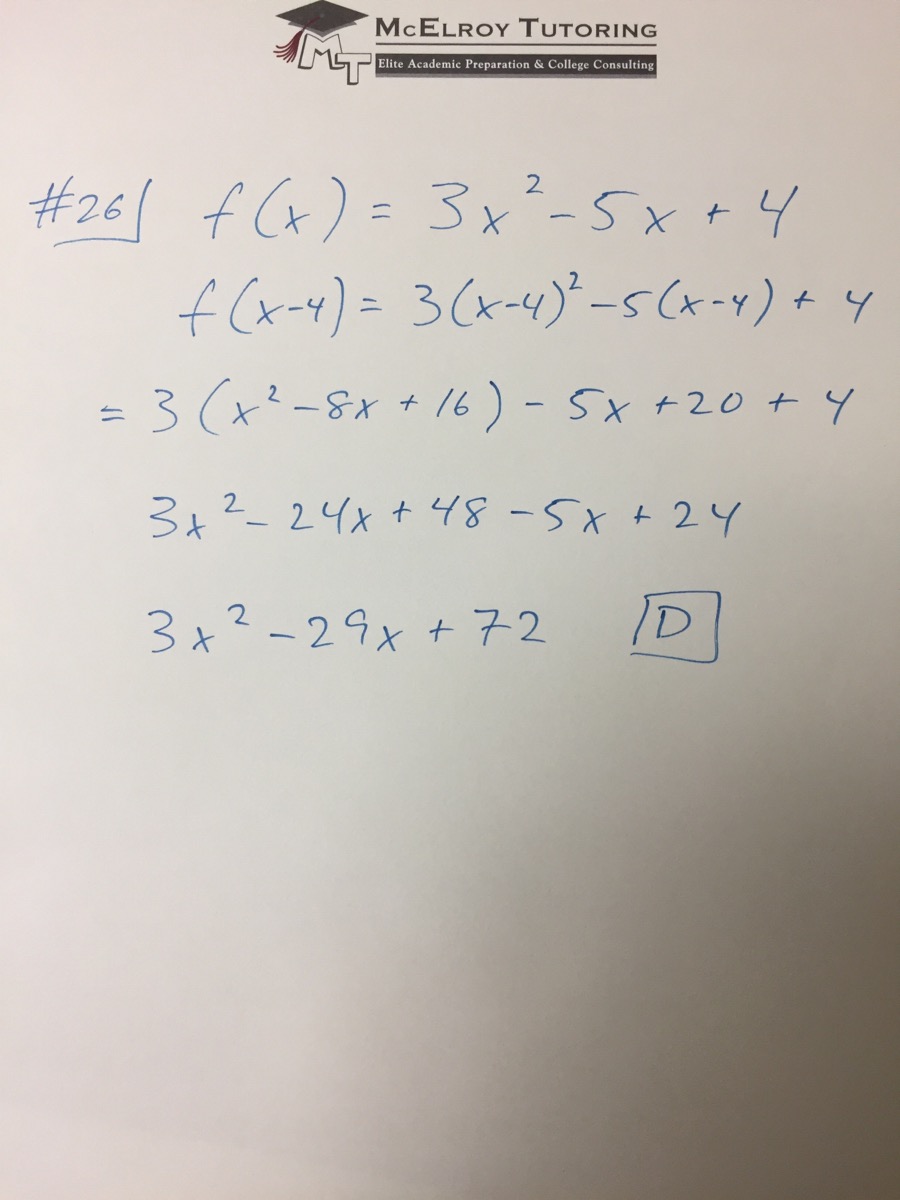 McElroy Tutoring
MT
Elite Academic Preparation & College Consulting
#26 f(x) = 3x² - 5x + 4
f(x-4) = 3(x-4)² - 5(x-4) + 4
= 3(x² - 8x + 16) - 5x + 20 + 4
3x² - 24x + 48 - 5x + 24
3x² - 29x + 72 D